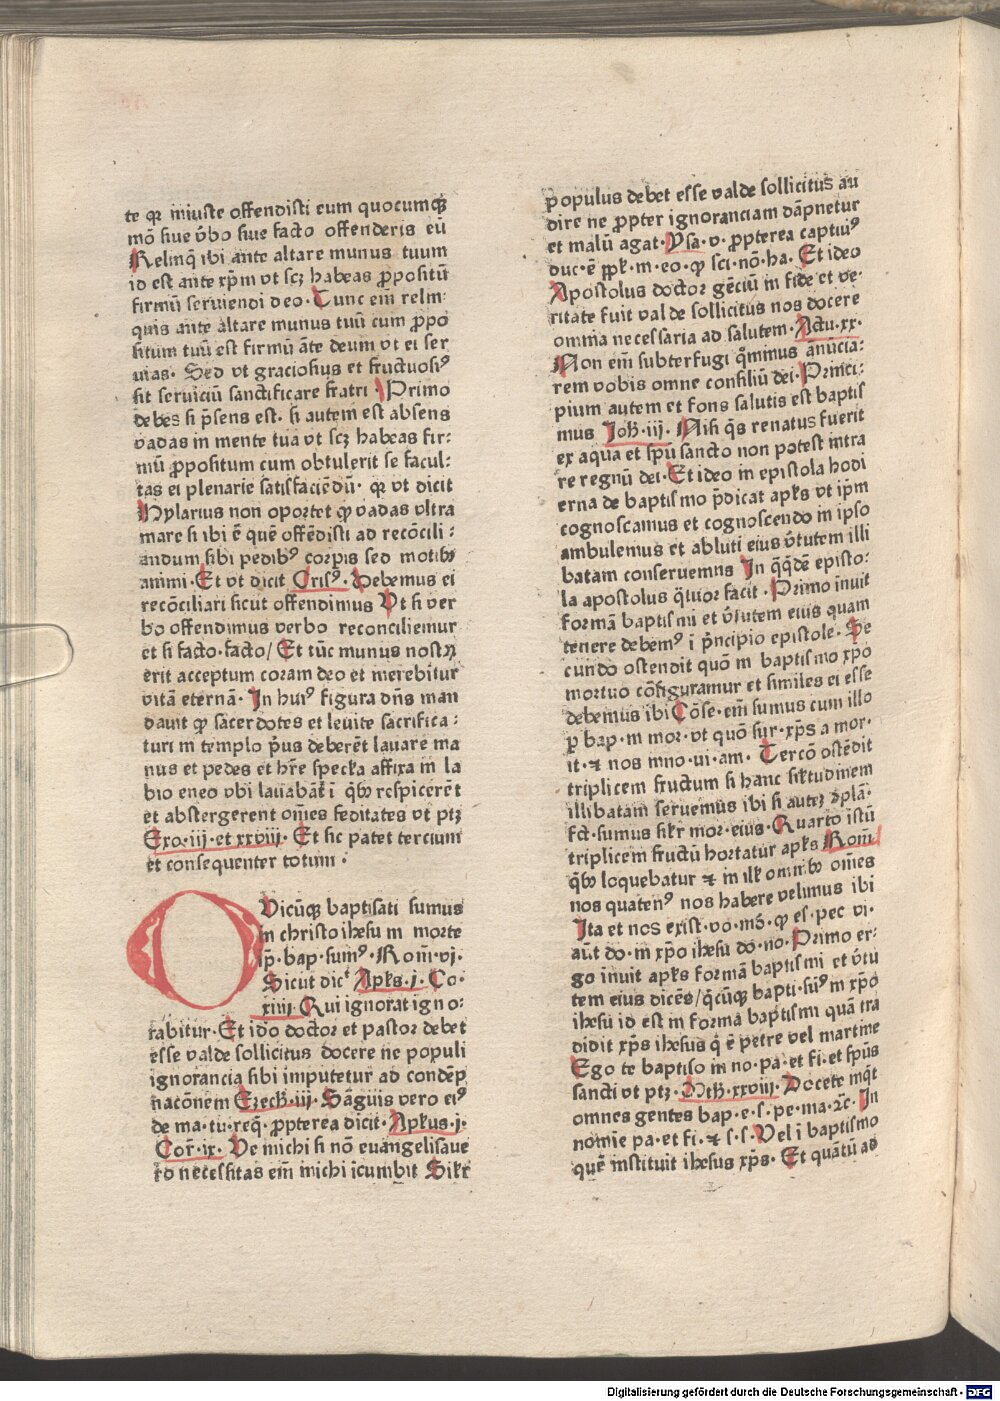 te qꝛ iniuste offendisti eum quocumqꝫ
mō siue v̄bo siue facto offenderis eū
Relinq̄ ibi ante altare munus tuum
id est ante xp̄m vt scꝫ habeas ꝓpositū
firmū seruiendi deo · Tunc em̄ relin-
quis ante altare munus tuū cum ꝓpo
situm tuū est firmū āte deum vt ei ser
uias · Sed vt graciosius et fructuosiꝰ
sit seruiciū sanctificare fratri · Primo
debes si p̄sens est · si autem est absens
vadas in mente tua vt scꝫ habeas fir:
mū ꝓpositum cum obtulerit se facul:
tas ei plenarie satisfaciēdū · qꝛ vt dicit
Hylarius non oportet ꝙ vadas vltra
mare si ibi ē quē offēdisti ad recōcili:
andum sibi pedibꝰ corpis sed motibꝫ
animi · Et vt dicit Crisꝰ · Debemus ei
recōciliari sicut offendimus Vt si ver
bo offendimus verbo reconciliemur
et si facto · facto / Et tūc munus nostꝝ
erit acceptum coram deo et merebitur
vitā eternā · In huiꝰ figura dn̄s man
dauit ꝙ sacerdotes et leuite sacrifica:
turi in templo p̄us deberēt lauare ma
nus et pedes et hr̄e specła affixa in la
bio eneo vbi lauabāt ī qͥbꝫ respicerēt
et abstergerent om̄es feditates vt ptꝫ
Exo · iij · et xxviij · Et sic patet tercium
et consequenter totum ·
Ovicūqꝫ baptisati sumus
in christo ihesu in morte
ip̄ · bap · sumꝰ · Rom̄ · vj ·
Sicut dicͭ Apls · j · Co ·
xiiij · Qui ignorat igno:
rabitur · Et ido doctor et pastor debet
esse valde sollicitus docere ne populi
ignorancia sibi imputetur ad condēp
nacōnem Ezech · iij · Sāguis vero eiꝰ
de ma · tu · req̄ · ꝓpterea dicit · Aplus · j ·
Cor̄ · ix · Ve michi si nō euangelisaue
ro necessitas em̄ michi īcumbit Silr
populus debet esse valde sollicitus au
dire ne ꝓpter ignoranciam dāpnetur
et malū agat · Ysa · v · ꝓpterea captiuꝰ
duc · ē ppł · m · eo · ꝙ sci · nō · ha · Et ideo
Apostolus doctor gēciū in fide et ve-
ritate fuit valde sollicitus nos docere
omnia necessaria ad salutem · Actu · xx ·
Non em̄ subterfugi qͦminus anūcia:
rem vobis omne consiliū dei · Princi:
pium autem et fons salutis est baptis
mus Joh · iij · Nisi qͥs renatus fuerit
ex aqua et spū sancto non potest intra
re regnū dei · Et ideo in epistola hodi
erna de baptismo p̄dicat apls vt ip̄m
cognoscamus et cognoscendo in ipso
ambulemus et abluti eius v̄tutem illi
batam conseruemus In qͣqͥdē episto:
la apostolus qͣtuor facit · Primo īnuit
formā baptismi et v̄tutem eius quam
tenere debemꝰ ī p̄ncipio epistole · Se
cundo ostendit quō in baptismo xp̄o
mortuo cōfiguramur et similes ei esse
debemus ibi Cōse · em̄ sumus cum illo
ꝑ bap · in mor · vt quō sur · xp̄s a mor ·
it · ⁊ nos in no · vi · am · Tercō ostēdit
triplicem fructum si hanc silitudinem
illibatam seruemus ibi si autē 9plā ·
fct · sumus silr mor · eius · Quarto istū
triplicem fructū hortatur apls Rom̄
qͥbꝫ loquebatur ⁊ in ill omnibꝫ om̄es
nos quatenꝰ nos habere velimus ibi
Ita et nos exist · vo · mō · ꝙ es · pec vi ·
aūt do · in xp̄o ihesu do · no · Primo er-
go inuit apls formā baptismi et v̄tu
tem eius dicēs / qͥcūqꝫ bapti · suꝰ in xp̄o
ihesu id est in forma baptismi quā tra
didit xp̄s ihesus qͥ ē petre vel martine
Ego te baptiso in no · pa · et fi · et spūs
sancti vt ptꝫ · Mth · xxviij · Docete inqͥt
omnes gentes bap · e · s · pe · ma · ꝛc · In
nomie pa · et fi · ⁊ s · s · Vel ī baptismo
quē instituit ihesus xp̄s · Et quātū ad
Digitalisierung gefördert durch die Deutsche Forschungsgemeinschaft - DFG